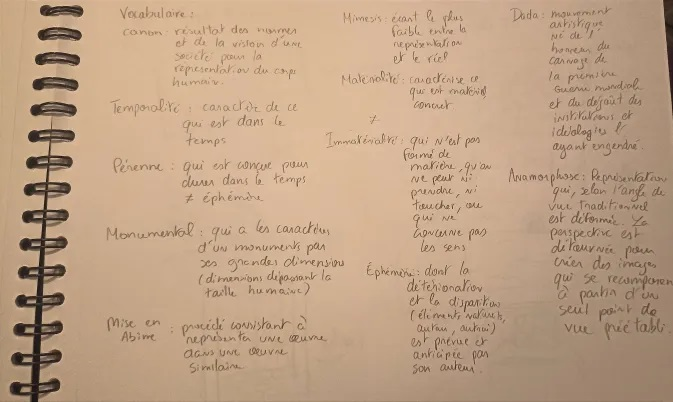 Vocabulaire :
canon : résultat des normes
et de la vision d'une
société pour la
représentation du corps
humain.
Temporalité : caractère de ce
qui est dans le
temps
Pérenne : qui est conçue pour
durer dans le temps
≠ éphémère
Monumental : qui a les caractères
d'un monuments par
ses grandes dimension
(dimensions dépassant la
taille humaine)
Mise en
Abime : procédé consistant à
représenter une œuvre
dans une œuvre
similaire
Mimesis : écart le plus
faible entre la
représentation
et le réel
Matérialité : caractérise ce
qui est matériel
concret
≠
Immatérialité : qui n'est pas
formé de
matière, qu'on
ne peut ni
prendre, ni
toucher, ou
qui ne
concerne pas
les sens
Éphémère : dont la
détérioration
et la disparition
(éléments naturels,
auteur, autrui)
est prévue et
anticipée par
son auteur.
Dada : mouvement
artistique
né de l'
horreur du
carnage de
la première
Guerre mondiale
et du dégoût des
institutions et
idéologies l'
ayant engendré.
Anamorphose : Représentation
qui, selon l'angle de
vue traditionnel
est déformée. La
perspective est
détournée pour
créer des images
qui se recomposent
à partir d'un
seul point de
vue préétabli.